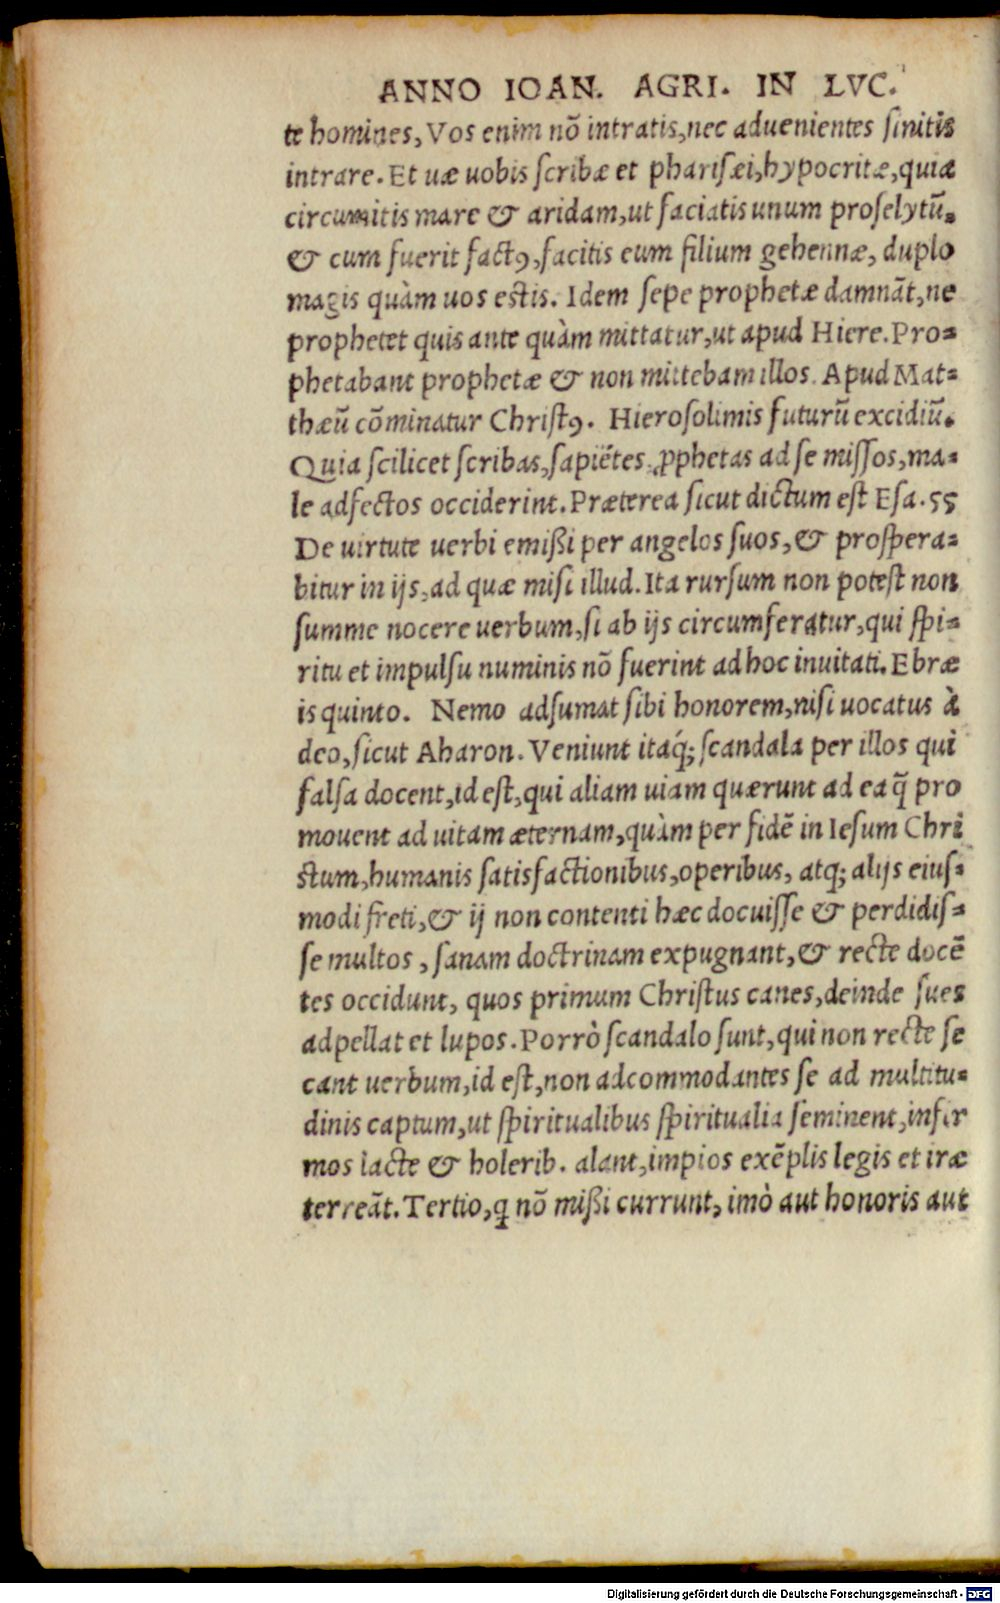 ANNO IOAN. AGRI. IN LVC.
te homines, Vos enim nō intratis, nec aduenientes sinitis
intrare. Et uæ uobis scribæ et pharisæi, hypocritæ, quia
circumitis mare & aridam, ut faciatis unum proselytū.
& cum fuerit factꝰ, facitis eum filium gehennæ, duplo
magis quàm uos estis. Idem sepe prophetæ damnāt, ne
prophetet quis ante quàm mittatur, ut apud Hiere. Pro=
phetabant prophetæ & non mittebam illos. Apud Mat=
thæū cōminatur Christꝰ. Hierosolimis futurū excidiū.
Quia scilicet scribas, sapiētes, ꝓphetas ad se missos, ma=
le adfectos occiderint. Præterea sicut dictum est Esa. 55
De uirtute uerbi emißi per angelos suos, & prospera=
bitur in ijs, ad quæ misi illud. Ita rursum non potest non
summe nocere uerbum, si ab ijs circumferatur, qui spi=
ritu et impulsu numinis nō fuerint ad hoc inuitati. Ebræ
is quinto. Nemo adsumat sibi honorem, nisi uocatus à
deo, sicut Aharon. Veniunt itaq́; scandala per illos qui
falsa docent, id est, qui aliam uiam quærunt ad ea q̄ pro
mouent ad uitam æternam, quàm per fidē in Iesum Chri
stum, humanis satisfactionibus, operibus, atq; alijs eius=
modi freti, & ij non contenti hæc docuisse & perdidis=
se multos, sanam doctrinam expugnant, & recte docē
tes occidunt, quos primum Christus canes, deinde sues
adpellat et lupos. Porrò scandalo sunt, qui non recte se
cant uerbum, id est, non adcommodantes se ad multitu=
dinis captum, ut spiritualibus spiritualia seminent, infir
mos lacte & holerib. alant, impios exēplis legis et iræ
terreāt. Tertio, q nō mißi currunt, imò aut honoris aut
Digitalisierung gefördert durch die Deutsche Forschungsgemeinschaft - DFG